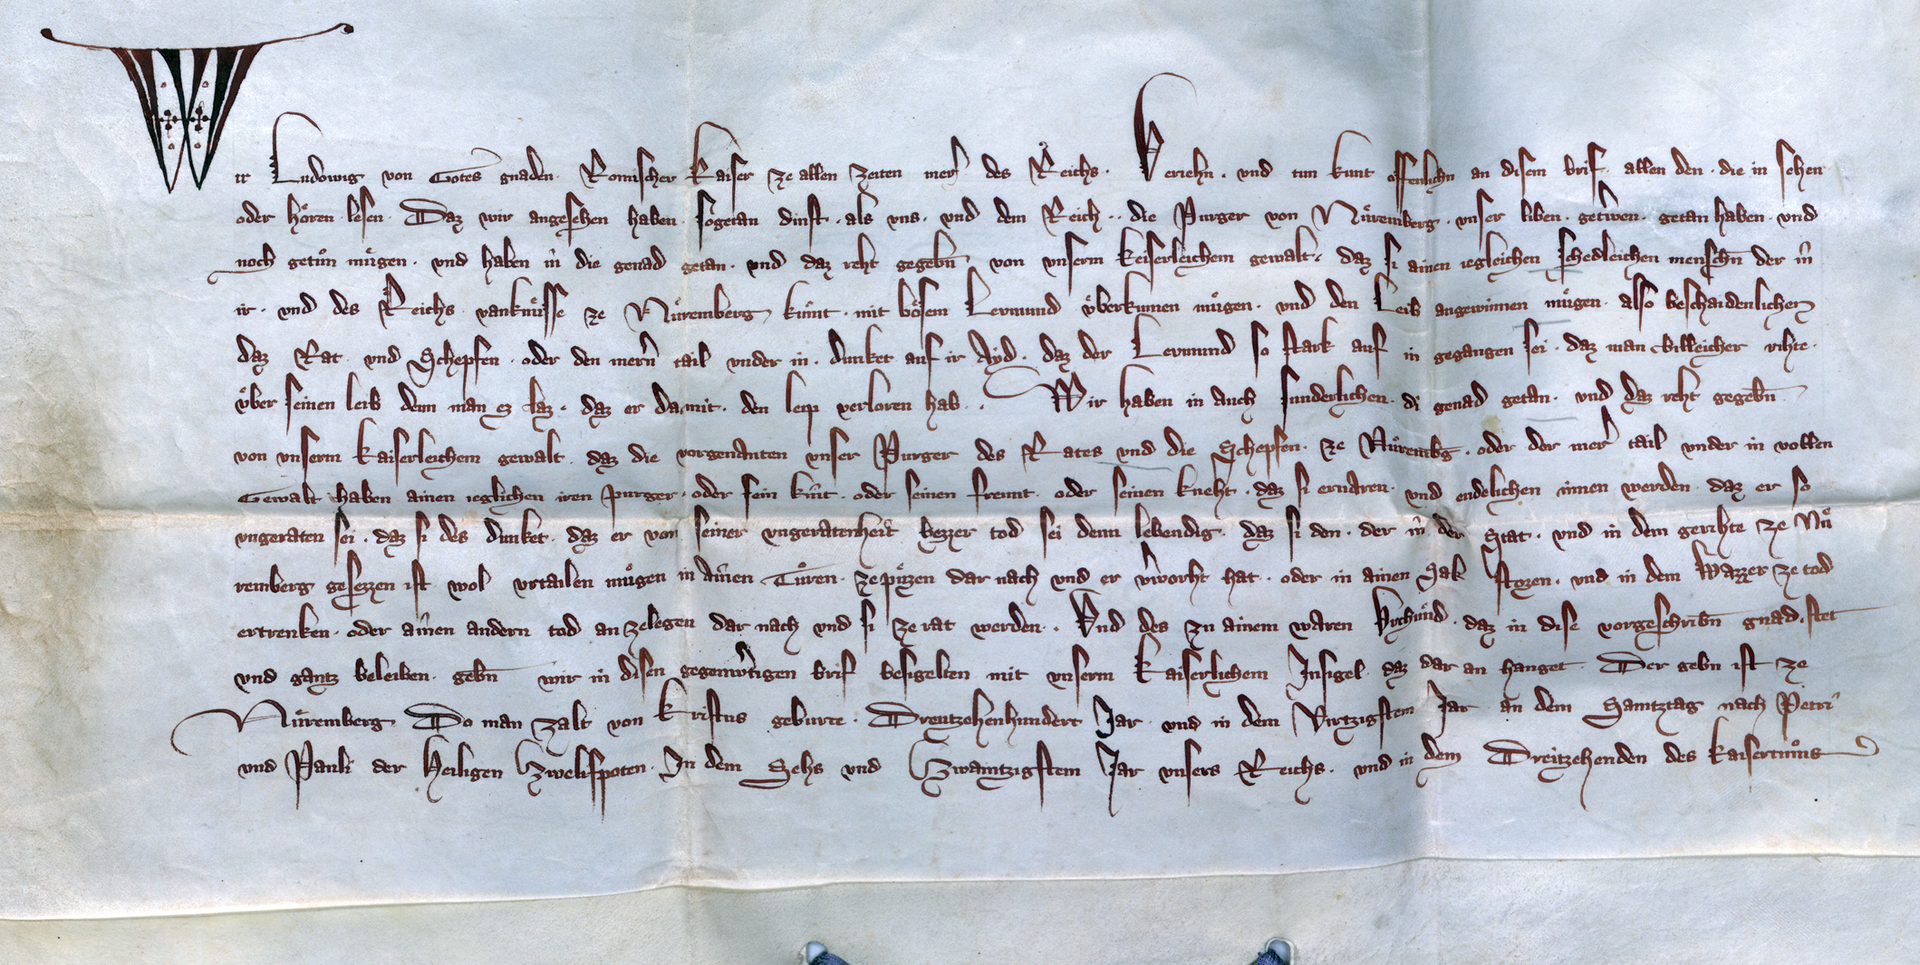 Wir Ludowig von Gotes gnaden · Romischer Kaiser ze allen zeiten merer des Reichs · Veriehn · vnd tun kunt offenlichn an disem brif · allen den · die in sehen
oder hoͤren lesen · Daz wir angesehen haben · soͤgetan dinst · als vns · vnd dem Reich · die Purger von Nuͤremberg · vnser liben · getrwen · getan haben · vnd
noch getuͦn muͤgen · vnd haben in die genad getan · vnd daz reht gegebn̄ von vnserm keiserleichem gewalt · daz si ainen iegleichen schedleichen menschn̄ der in
ir · vnd des Reichs vanknuͤsse ze Nuͤremberg kuͤmt · mit boͤsem Levmund uͤberkumen muͤgen · vnd den Leib angewinnen muͤgen · also beschaidenlichen
daz Rat · vnd Schepfen · oder den mern̄ tail vnder in · dunket auf ir Ayd · daz der Levmund so stark auf in gegangen sei · daz man billeicher rihte ·
uͤber seinen leib denn man ez laz · daz er damit · den leip verloren hab · Wir haben in auch sunderlichen · di genad getan · vnd daz reht gegebn̄
von vnserm kaiserleichem gewalt · daz die vorgenanten vnser Purger des Rates vnd die Schepfen · ze Nuͤrembg · oder der mer tail vnder in vollen
Gewalt haben ainen ieglichen iren purger · oder sein kint · oder seinen freunt · oder seinen kneht · daz si ernaren · vnd endelichen innen werden · daz er so
vngeraten sei · daz si des dunket · daz er von seiner vngeratenheit bezzer tod sei denn lebendig · daz si den · der in der Stat · vnd in dem gerihte ze Nuͤ
remberg gesezzen ist wol vrtailen muͤgen in ainen Tuͤren · ze puͤzen dar nach vnd er v̾worht hat · oder in ainen Sak stozen · vnd in dem Wazzer ze tod
ertrenken · oder ainen andern tod an zelegen dar nach vnd si ze rat werden · Vnd des zu ainem waren Vrchuͤnd · daz in dise vorgeschribn̄ gnad · stet
vnd gantz beleiben · gebn̄ wir in disen gegenwrtigen brif besigelten mit vnserm kaiserlichem Insigel daz dar an hanget · Der gebn ist ze
Nuͤremberg Do man zalt von Kristus geburte · Dreutzehenhundert Jar · vnd in dem Virtzigstem Jar an dem Samtztag nach Petri
vnd Pauli der Heiligen Zwelifpoten · In dem Sehs vnd Zwaintzigstem Jar vnsers Reichs · vnd in dem Dreitzehenden des kaisertuͦms